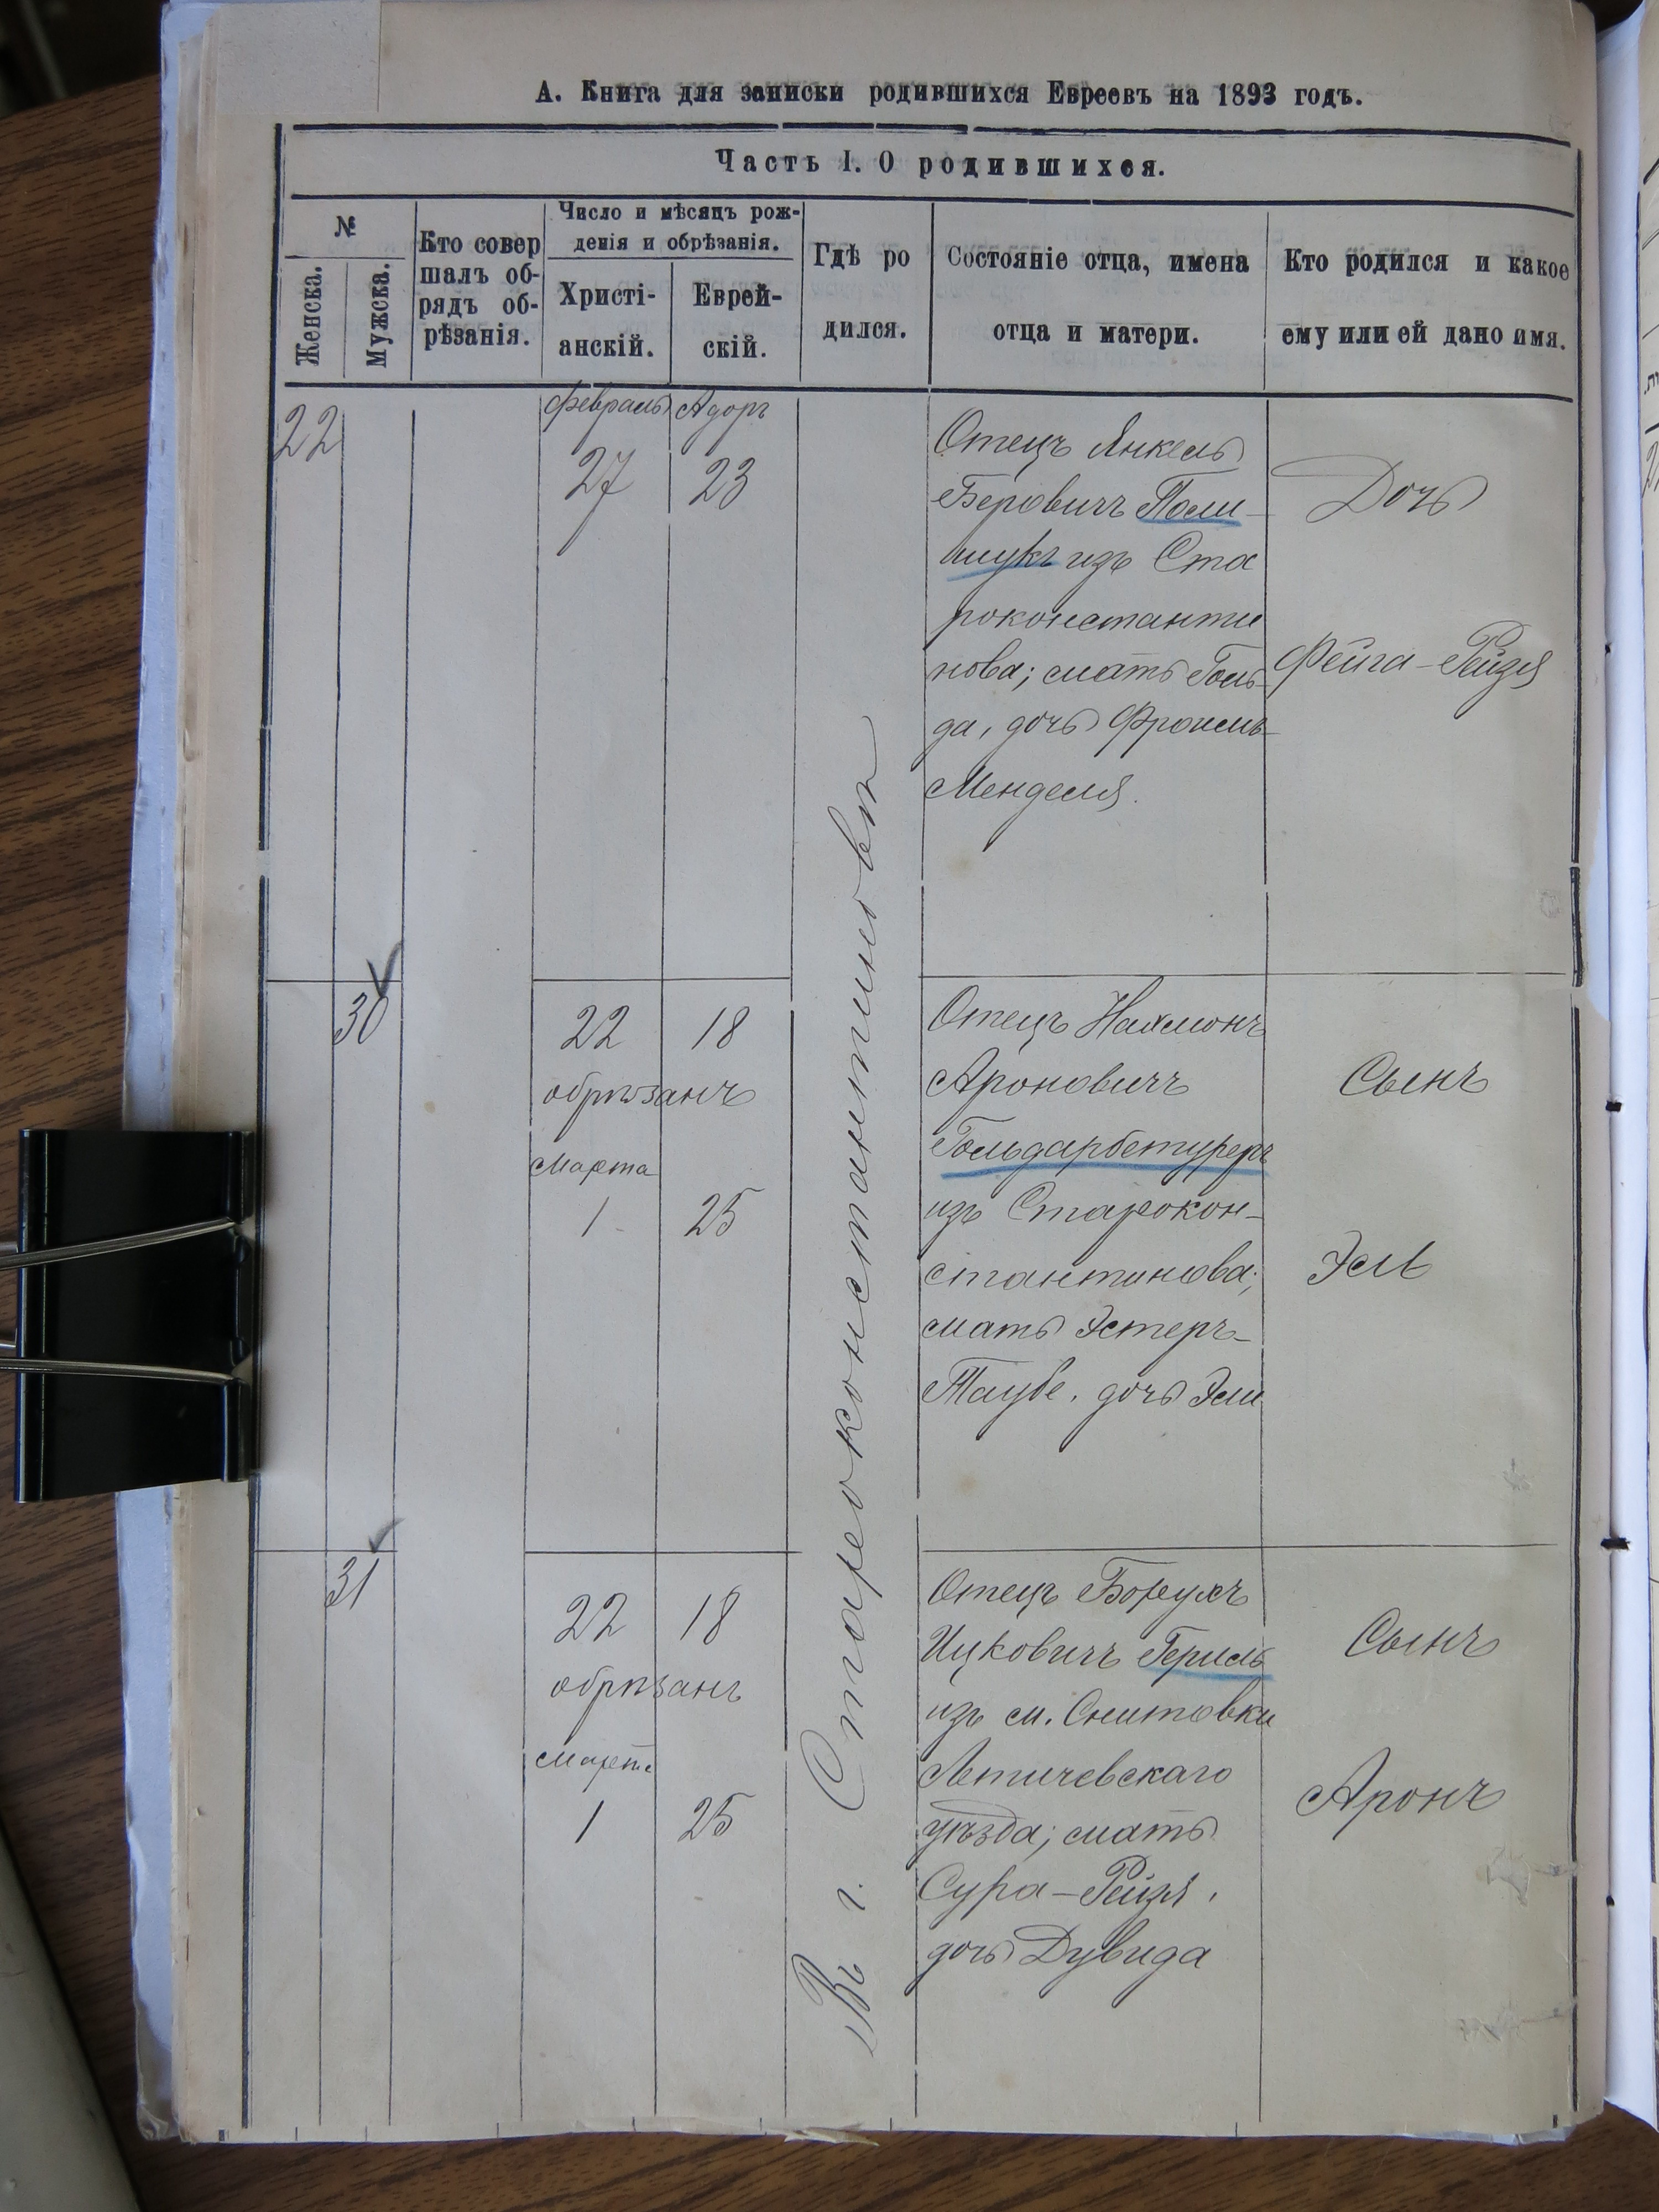 А. Книга для записки родившихся Евреевъ на 1893 годъ.
Часть I. О родившихся.
№
Женска.
Мужска.
Кто совер
шалъ об-
рядъ об-
рѣзанія.
Число и мѣсяцъ рож-
денія и обрѣзанія.
Христі-
анскій.
Еврей-
скій.
Гдѣ ро
дился.
Состояніе отца, имена
отца и матери.
Кто родился и какое
ему или ей дано имя.
22
Февраль
27
Адоръ
23
Въ г. Староконстантиновѣ
Отецъ Янкель
Беровичъ Поли-
щукъ изъ Ста
роконстанти
нова; мать Голь-
да, дочь Фроимъ-
Менделя.
Дочь
Фейга-Рейзя
30
22
18
обрѣзанъ
Марта
1
25
Отецъ Нахмонъ
Ароновичъ
Гольдарбетуреръ
изъ Старокон-
стантинова;
мать Эстеръ-
Таубе, дочь Эли
Сынъ
Эль
31
22
18
обрѣзанъ
Марта
1
25
Отецъ Борухъ
Ицковичъ
изъ м. Снитовки
Летичевскаго
уѣзда; мать
Сура-Рейзя,
дочь Дувида
Сынъ
Аронъ